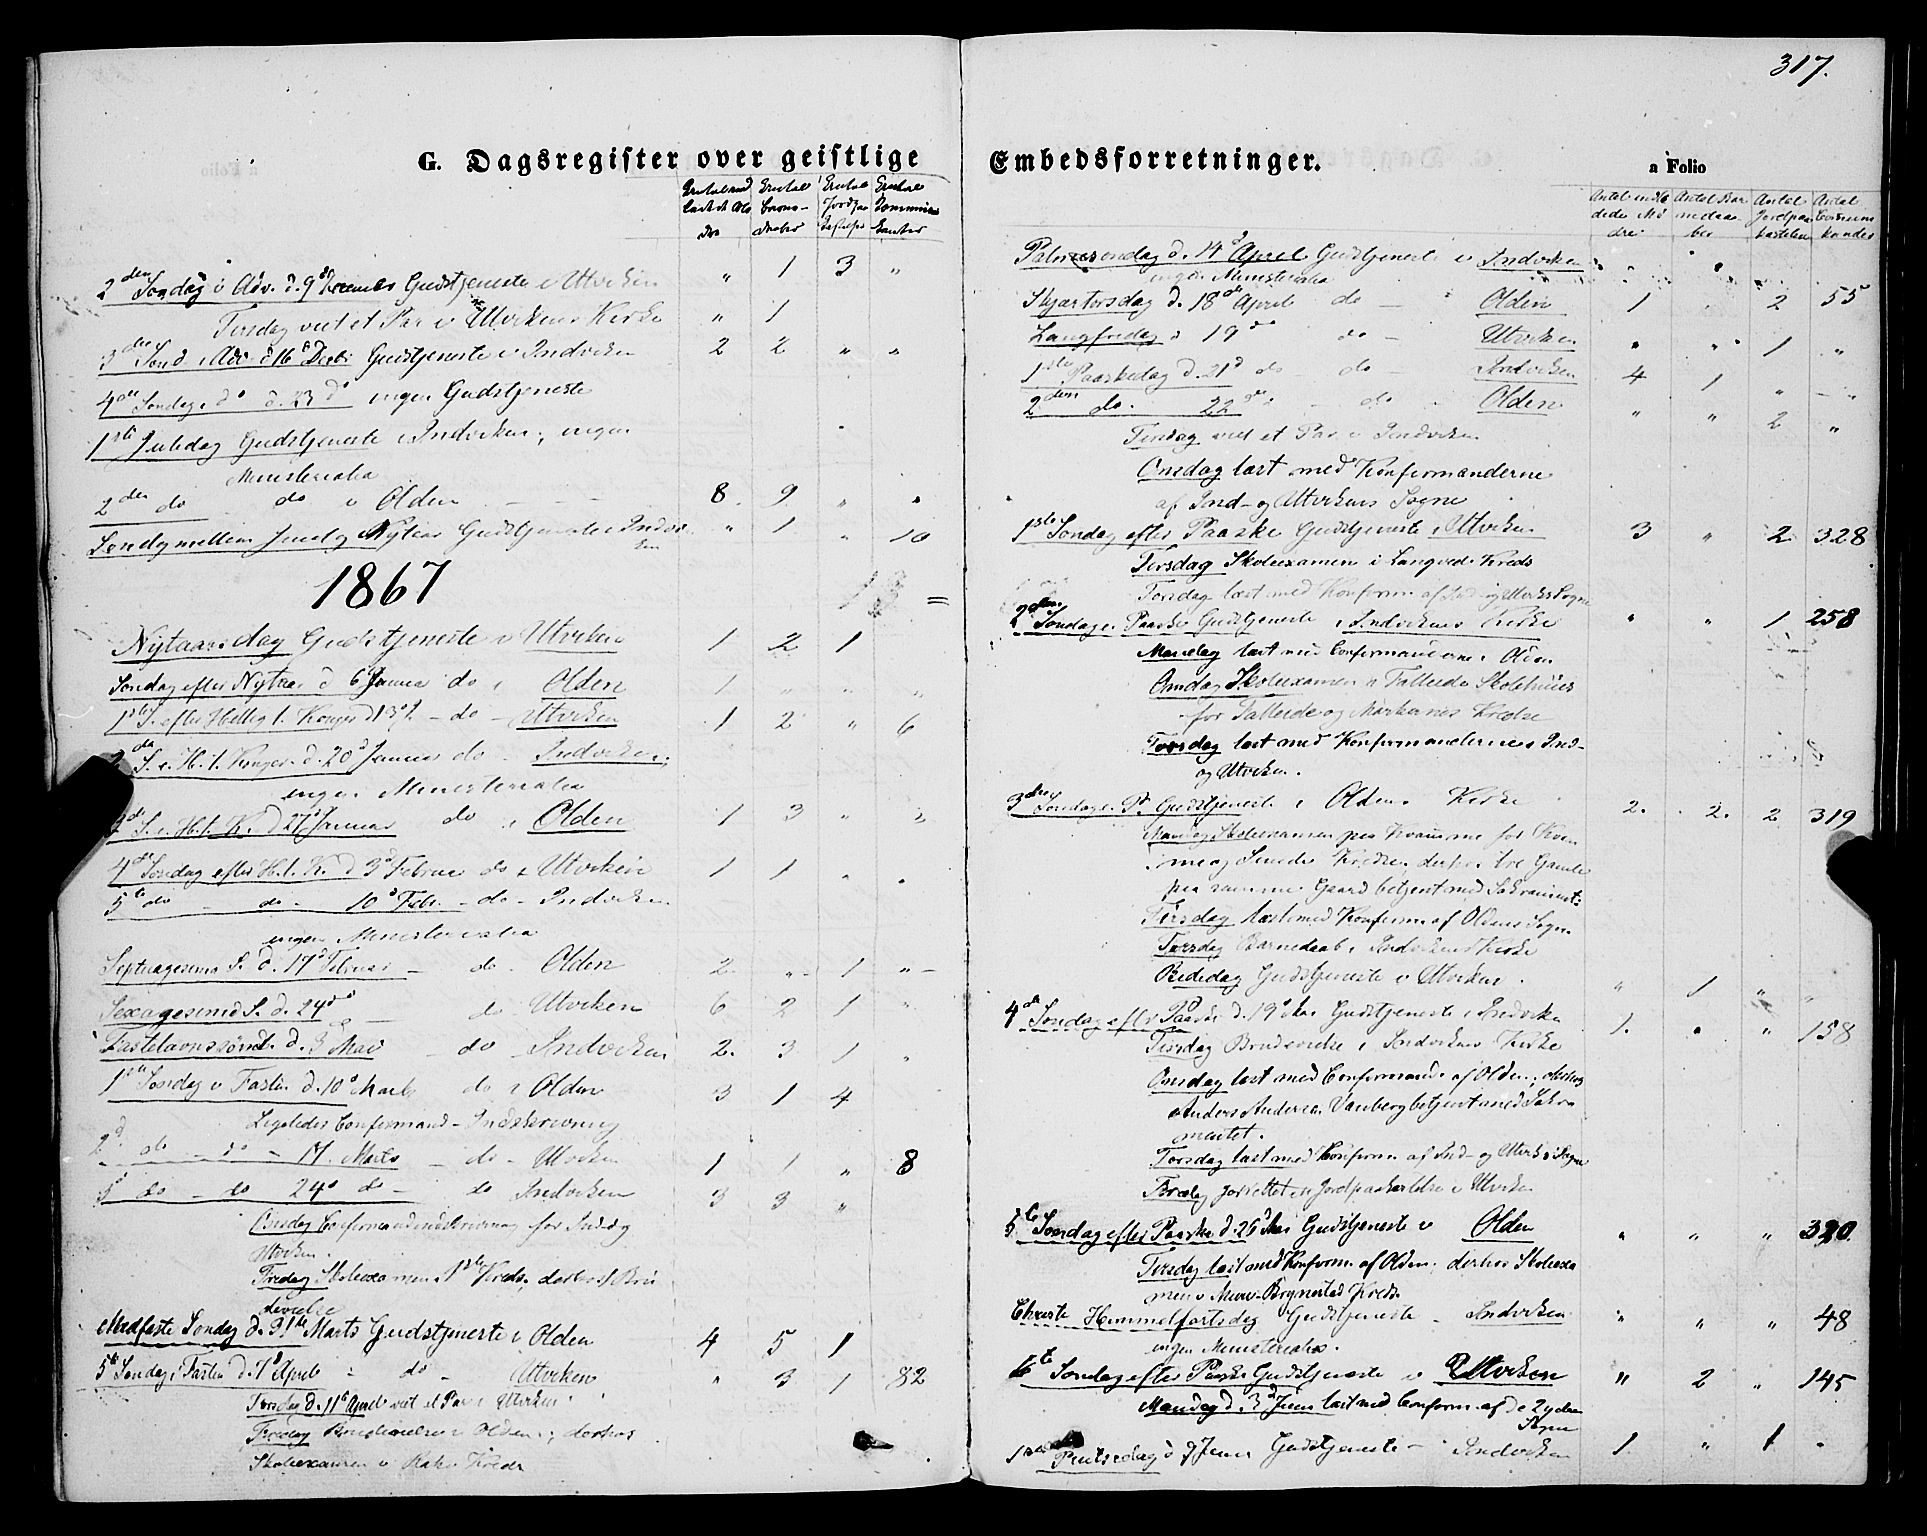 317.
G. Dagsregister over geistlige
Embedsforretninger.
a Folio
2den Søndag i Adv. d. 9d Decemb Gudstjeneste i Utviken " 1 3 "
Tirsdag viet et Par i Utvikens Kirke " 1
3die Sønd. i Adv. d 16d Decbr Gudstjeneste i Indviken 2 2 " "
4de Søndag do d. 23d ingen Gudstjeneste
1ste Juledag Gudstjeneste i Indviken; ingen
Ministerialia
2den do do i Olden 8 9 " "
Søndag mellem Juul og Nytaar Gudstjeneste i Indvi " 1 " 10
ken
1867
Nytaarsdag Gudstjeneste i Utviken 1 2 1
Søndag efter Nytaar d 6 Januar do i Olden 1 " " "
1ste S. efter Hellig t. Konger d 13d do Utviken 1 2 " 6
2den S. e. H. t. Konger d. 20d Januar do Indviken;
ingen Ministerialia
S. e. H. t. K. d 27d Januar do i Olden 1 3 "
4de Søndag efter H. t. K. d 3d Februar do i Utviken 1 1 " "
5te do do 10d Febr. do Indviken
ingen Ministerialia
Septuagesima S. d. 17d Februar do Olden 2 " 1 "
Sexagesima S. d. 24d do Utviken 6 2 1 "
Fastelavnssønd. d. 3 Mar do Indviken 2 3 1 "
1ste Søndag i Fasten d. 10d Marts do i Olden 3 1 4
Ligeledes Confirmand-Indskrivning
2d do do 17. Marts do Utviken 1 1 " 8
3d do do 24d do do Indviken 3 3 "
Onsdag Confirmandindskrivning for Ind og
Utviken.
Fredag Skoleexamen i 1ste Kreds, derhos 1 Bru
devielse
Midfaste Søndag d. 31te Marts Gudstjeneste i Olden 4 5 1
5te Søndag i Fasten d. 7d April do Utviken " 3 1 82
Torsdag d. 11te April viet et Par i Utviken
Fredag Brudevielse i Olden; derhos
Skoleexamen i Kreds
Palmesøndag d. 14d April Gudstjeneste i Indviken " " " "
ingen Ministerialia
Skjærtorsdag d. 18de April do Olden 1 2 55
Langfredag d 19de do Utviken " " 1 "
1ste Paaskedag d. 21d do do Indviken 4 1 " "
2den do. 22de do Olden " " 2 "
Tirsdag viet et Par i Indviken
Onsdag læst med Konfirmanderne
af Ind- og Utvikens Sogne
1ste Søndag efter Paaske Gudstjeneste i Utviken 3 " 2 328
Tirsdag Skoleexamen i Langveds Kreds
Torsdag læst med Konfirm. af Ind- og Utvikens Sogne
2den Søndag e. Paaske Gudstjeneste i Indvikens Kirke " " 1 258
Mandag læst med Confirmanderne i Olden
Onsdag Skoleexamen i Skolehuus
for og Kredse
Torsdag læst med Konfirmanderne i Ind-
og Utviken.
3die Søndag e. P. Gudstjeneste i Oldens Kirke 2. 2. 2 319
Mandag Skoleexamen paa for
me og Kredse, derhos tre Gamle
paa samme Gaard betjent med Sakramentet
Tirsdag læst med Konfirm. af Oldens Sogn
Torsdag Barnedaab i Indvikens Kirke
Bededag Gudstjeneste i Utviken. " 1 " "
4de Søndag efter Paaske d. 19d Mai Gudstjeneste i Indviken 1. " " 158
Tirsdag Brudevielse i Indvikens Kirke
Onsdag læst med Confirmand. af Olden; derhos
Anders Andersen betjent med Sakra
mentet.
Torsdag læst med Konfirm. af Ind- og Utvikens Sogne
Fredag forrettet en Jordpaakastelse i Utviken
5te Søndag efter Paaske d. 26d Mai Gudstjeneste i Olden " " " 320
Tirsdag læst med Konfirm. af Olden. derhos Skoleexa
men i Kreds
Christi Himmelfartsdag Gudstjeneste Indviken " " " 48
ingen Ministerialia.
6te Søndag efter Paaske Gudstjeneste i Utviken " 2 " 145
Mandag d. 3d Juni læst med Confirm. af de 2 ydre
Sogne
1ste Pintsedag d 9 Juni Gudstjeneste Indviken 1. " 1 "